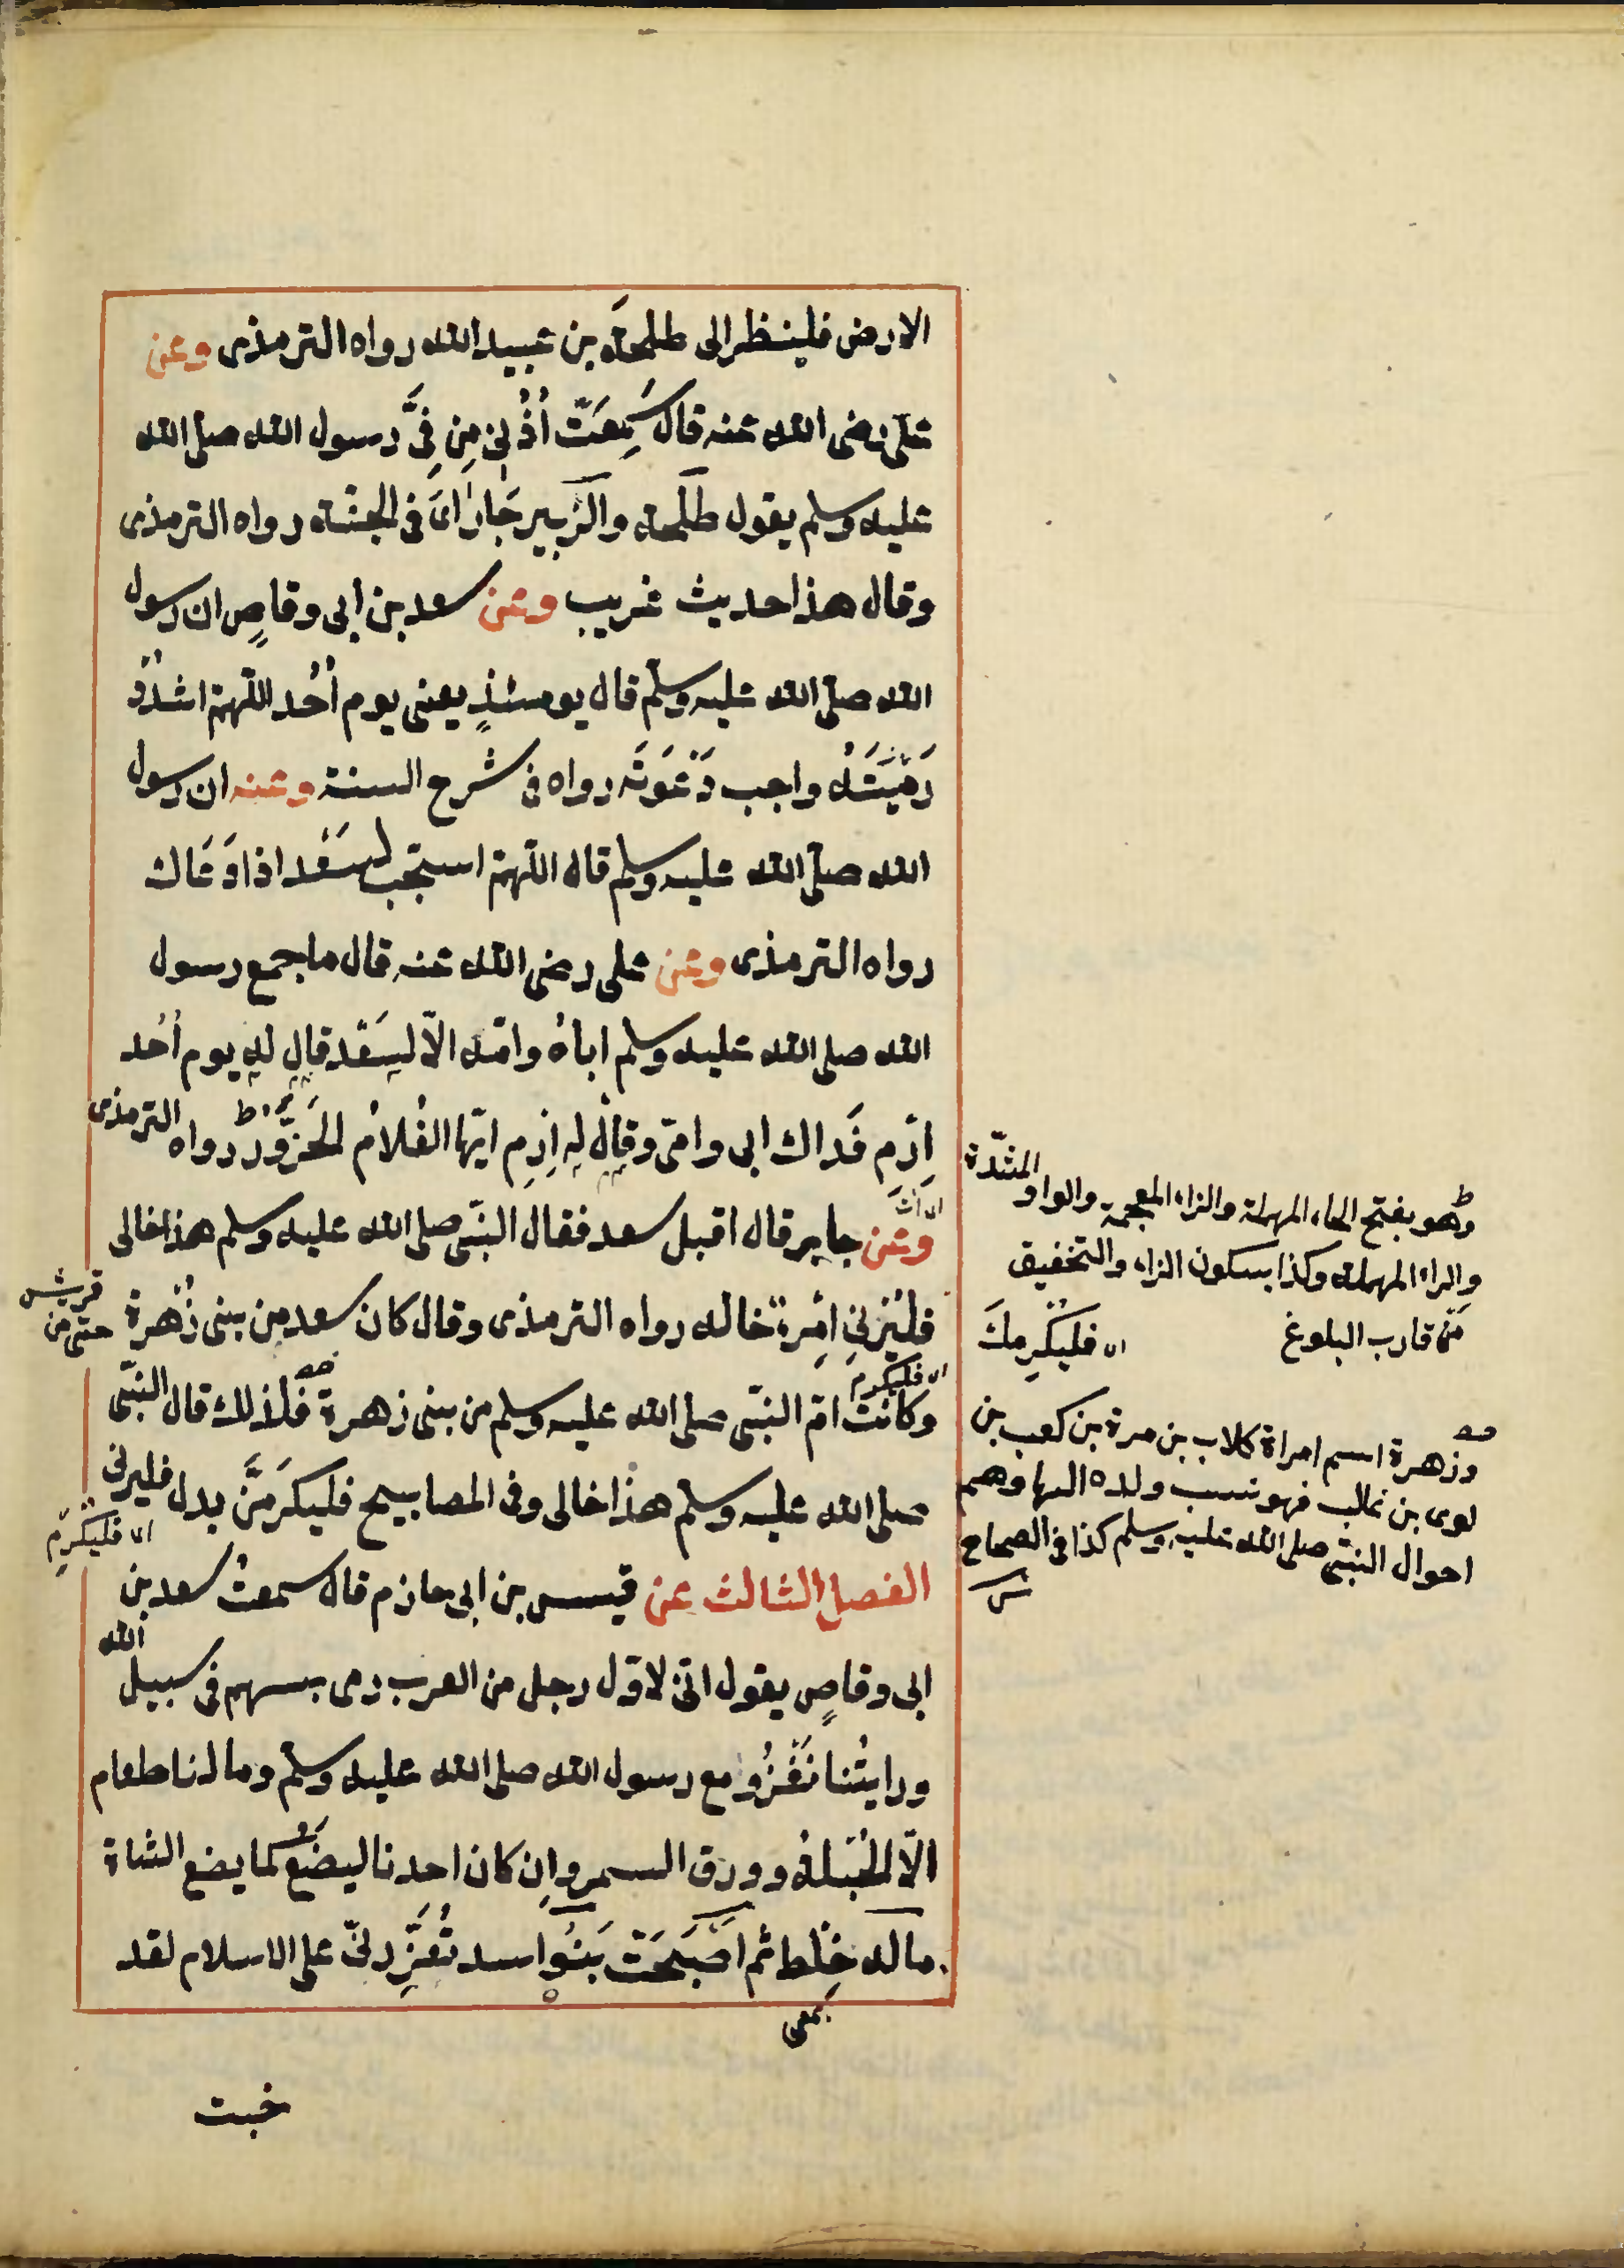 الارض فلينظر الى طلحة بن عبيد الله رواه الترمذى وعن
على رضى الله عنه قال سَمِعَتْ اُذُنِى مِن فِىّ رسول الله صلى الله
عليه وسلم يقول طلحة والزبير جاراىَ فى الجنة رواه الترمذى
وقال هذا حديث غريب وعن سعد بن ابى وقاصٍ ان رسول
الله صلى الله عليه وسلم قال يومئذٍ يعنى يوم اُحُد اللهم اشدُدْ
رَمْيَتَهُ واجب دَعْوَتَه رواه فى شرح السنة وعنه ان رسول
الله صلى الله عليه وسلم قال اللهم استجب لسَعْد اذا دَعَاك
رواه الترمذى وعن على رضى الله عنه قال ما جمع رسول
الله صلى الله عليه وسلم اباهُ وامّه الّا لسَعْد قال له يوم اُحُد
اِرْمِ فَداك ابى وامى وقال له اِرْمِ ايّها الغُلامُ الحَزَوَّرُ رواه الترمذى
وعن جابر قال اقبل سعد فقال النبّى صلى الله عليه وسلم هذا خالى
فليُرِنِى امْرءٌ خاله رواه الترمذى وقال كان سعد من بنى زُهْرة حتى من قريش
وكانت امّ النبّى صلى الله عليه وسلم من بنى زهرة فلذلك قال النبّى
صلى الله عليه وسلم هذا خالى وفى المصابيح فليكرمَنَّ بدل فليرنى
الفصل الثالث عن قيس بن ابى حازم قال سمعتُ سعد بن
ابى وقاصٍ يقول انّى لاوّل رجل من العرب رمى بسهم فى سبيل الله
ورايتُنا نَغْزُو مع رسول الله صلى الله عليه وسلم وما لنا طعام
الّا الحُبْلةُ وورق السمر وانِ كان احدنا ليضَع كما يضع الشاة
ماله خِلْط ثم اصْبَحَتْ بَنُو اسد تُعَزِّرُنى على الاسلام لقد
بمعنى
خبت
وهو بفتح الحاء المهملة والزاء المعجمة والواو المشدّدة
والراء المهملة وكذا بسكون الزاء والتخفيف
مَن قارب البلوغ
فليُكْرِمكَ
فليكرم
فليكرّم
وزهرة اسم امراة كلاب بن مرة بن كعب بن
لوى بن غالب فهو نسب ولده اليها وهم
احوال النبّى صلى الله عليه وسلم كذا فى الصحاح